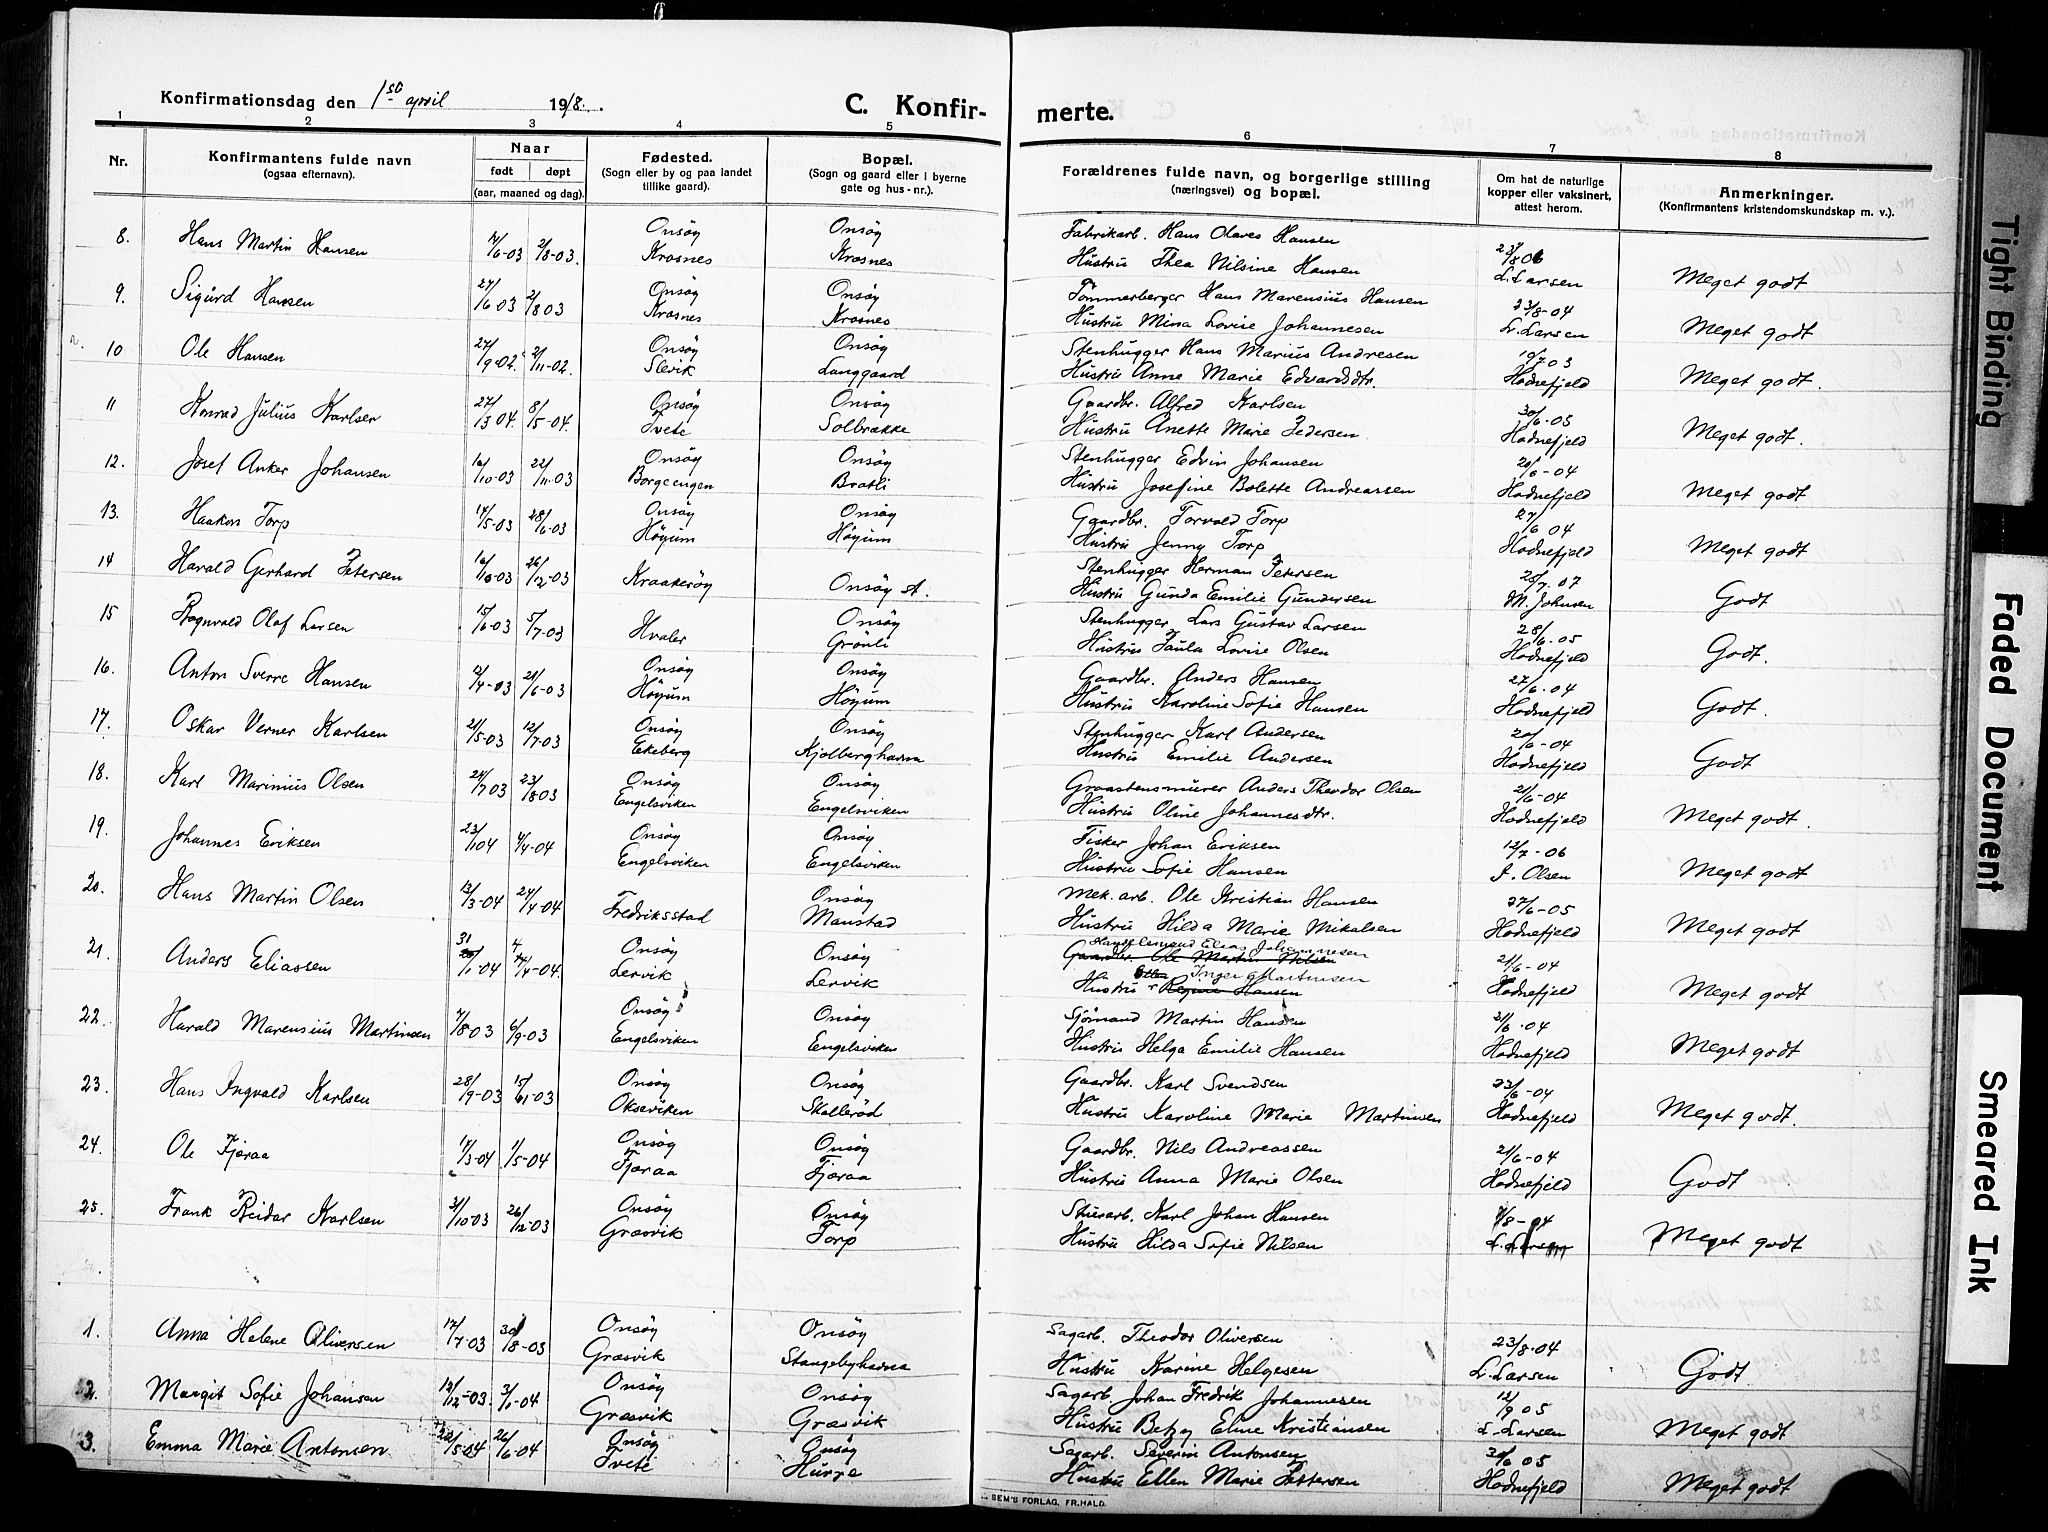 Konfirmationsdag den 1ste april 1918. C. Konfir- merte.
1 2 3 4 5 6 7 8
Nr. Konfirmantens fulde navn (ogsaa efternavn). Naar født døpt (aar, maaned og dag). Fødested. (Sogn eller by og paa landet tillike gaard). Bopæl. (Sogn og gaard eller i byerne gate og hus-nr.). Forældrenes fulde navn, og borgerlige stilling (næringsvei) og bopæl. Om hat de naturlige kopper eller vaksinert, attest herom. Anmerkninger. (Konfirmantens kristendomskundskap m. v.).
8. Hans Martin Hansen /6-03 2/8-03. Onsøy Krosnes Onsøy Krosnes Fabrikarb. Hans Olaves Hansen
Hustru Thea Nilsine Hansen 23/8 06 L. Larsen Meget godt
9. Sigurd Hansen 27/6 03 2/8 03 Onsøy Krosnes Onsøy Krosnes Tømmerberger Hans Marensius Hansen
Hustru Mina Lovise Johannesen 23/8-04 L. Larsen Meget godt
10 Ole Hansen 27/9-02. 2/11-02. Onsøy Slevik Onsøy Langgaard Stenhugger Hans Marius Andresen
Hustru Anne Marie Edvardsdtr. 10/7 03 Hodnefjeld Meget godt.
11 Konrad Julius Karlsen 27/3 04. 8/5-04. Onsøy Tvete Onsøy Solbrække Gaardbr. Alfred Karlsen
Hustru Anette Marie Pedersen 30/6-05 Hodnefjeld Meget godt.
12. Josef Anker Johansen 16/10-03 22/11-03 Onsøy Borgeengen Onsøy Bratli Stenhugger Edvin Johansen
Hustru Josefine Bolette Andreassen 20/6-04 Hodnefjeld Meget godt
13. Haakon Torp 17/5-03 28/6-03 Onsøy Höyum Onsøy Höyum Gaardbr. Torvald Torp
Hustru Jenny Torp 27/6 04 Hodnefjeld Meget godt
14 Harald Gerhard Petersen 16/10-03 26/12-03 Kraakerøy Onsøy st. Stenhugger Herman Petersen
Hustru Gunda Emilie Gundersen 25/7. 07 M. Johnsen Godt
15 Ragnvald Olaf Larsen 15/6-03 5/7-03 Hvaler Onsøy Grönli Stenhugger Lars Gustav Larsen
Hustru Paula Lovise Olsen 28/6. 05 Hodnefjeld Godt.
16. Anton Sverre Hansen /4-03 21/6-03 Onsøy Höyum Onsøy Höyum Gaardbr. Anders Hansen
Hustru Karoline Sofie Hansen 27/6. 04 Hodnefjeld Godt.
17. Oskar Verner Karlsen 21/5-03 12/7-03 Onsøy Ekeberg Onsøy Kjolberghavna Stenhugger Karl Andersen
Hustru Emilie Andersen 20/6-04 Hodnefjeld Godt
18. Karl Marinius Olsen 24/7 03 23/8 03 Onsøy Engelsviken Onsøy Engelsviken Graastensmurer Anders Theodor Olsen
Hustru Oline Johannesdtr. 21/6-04 Hodnefjeld Meget godt.
19. Johannes Eriksen 23/1 04 4/4-04 Onsøy Engelsviken Onsøy Engelsviken Fisker Johan Eriksen
Hustru Sofie Hansen 12/7-06 Olsen Meget godt
20. Hans Martin Olsen 13/3-04 24/4-04 Fredriksstad Onsøy Manstad Mek. arb. Ole Kristian Hansen
Hustru Hilda Marie Mikalsen 27/6-05 Hodnefjeld Meget godt
21. Anders Eliassen 31/1-04 4/4-04. Onsøy Lervik Onsøy Lervik Elias Johannesen
Gaardbr. Ole Martin Nilsen
Inga Martinsen
Hustru Regine Hansen 21/6-04 Hodnefjeld Meget godt
22. Harald Marensius Martinsen 7/8-03 6/9-03 Onsøy Engelsviken Onsøy Engelsviken Sjömand Martin Hansen
Hustru Helga Emilie Hansen 21/6. 04 Hodnefjeld Meget godt
23. Hans Ingvald Karlsen 28/9-03 15/11-03 Onsøy Okseviken Onsøy Skalleröd Gaardbr. Karl Svendsen
Hustru Karoline Marie Martinsen 23/6-04 Hodnefjeld Meget godt.
24. Ole Fjæraa 17/3-04 1/5-04 Onsøy Fjæraa Onsøy Fjæraa Gaardbr. Nils Andreassen
Hustru Anna Marie Olsen 21/6-04 Hodnefjeld Godt
25. Frank Reidar Karlsen 31/10-03 26/12-03 Onsøy Græsvik Onsøy Torp Karl Johan Hansen
Hustru Hilda Sofie Nilsen /8-04 L. Larsen Meget godt
1. Anna Helene Oliversen 17/7-03 30/8-03 Onsøy Græsvik Onsøy Stangebyhavna Sagarb. Theodor Oliversen
Hustru Karine Helgesen 23/8-04 L. Larsen Godt.
2. Margit Sofie Johansen 12/12-03. 3/1-04 Onsøy Græsvik Onsøy Græsvik Sagarb Johan Fredrik Johannesen
Hustru Betzy Eline Kristiansen 12/9 05 L. Larsen Meget godt
3. Emma Marie Antonsen. 22/5-04 26/6-04 Onsøy Tvete Onsøy Hurre Sagarb. Severin Antonsen
Hustru Ellen Marie Pettersen 30/6 05 Hodnefjeld Meget godt
SEM'S FORLAG, FR.HALD.
Tight Binding
Faded Document
Smeared Ink